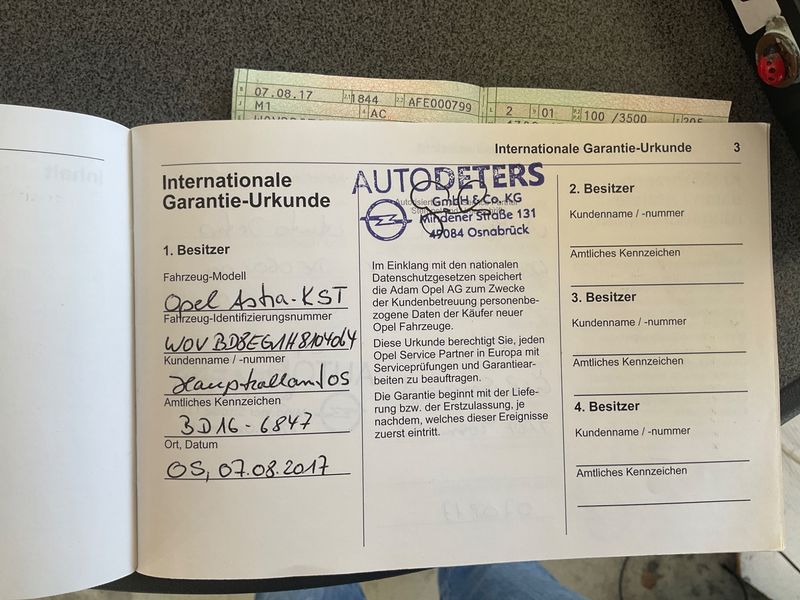 07.08.17 1844 AFE000799 2 01 100 /3500
M1 AC
Internationale Garantie-Urkunde 3
Internationale
Garantie-Urkunde
1. Besitzer
Fahrzeug-Modell
Opel Astra-KST
Fahrzeug-Identifizierungsnummer
WOVBD8EG1H8104064
Kundenname / -nummer
OS
Amtliches Kennzeichen
BD16-6847
Ort, Datum
OS, 07.08.2017
AUTODETERS
GmbH & Co. KG
Mindener Straße 131
49084 Osnabrück
Im Einklang mit den nationalen
Datenschutzgesetzen speichert
die Adam Opel AG zum Zwecke
der Kundenbetreuung personenbe-
zogene Daten der Käufer neuer
Opel Fahrzeuge.
Diese Urkunde berechtigt Sie, jeden
Opel Service Partner in Europa mit
Serviceprüfungen und Garantiear-
beiten zu beauftragen.
Die Garantie beginnt mit der Liefe-
rung bzw. der Erstzulassung, je
nachdem, welches dieser Ereignisse
zuerst eintritt.
2. Besitzer
Kundenname / -nummer
Amtliches Kennzeichen
3. Besitzer
Kundenname / -nummer
Amtliches Kennzeichen
4. Besitzer
Kundenname / -nummer
Amtliches Kennzeichen